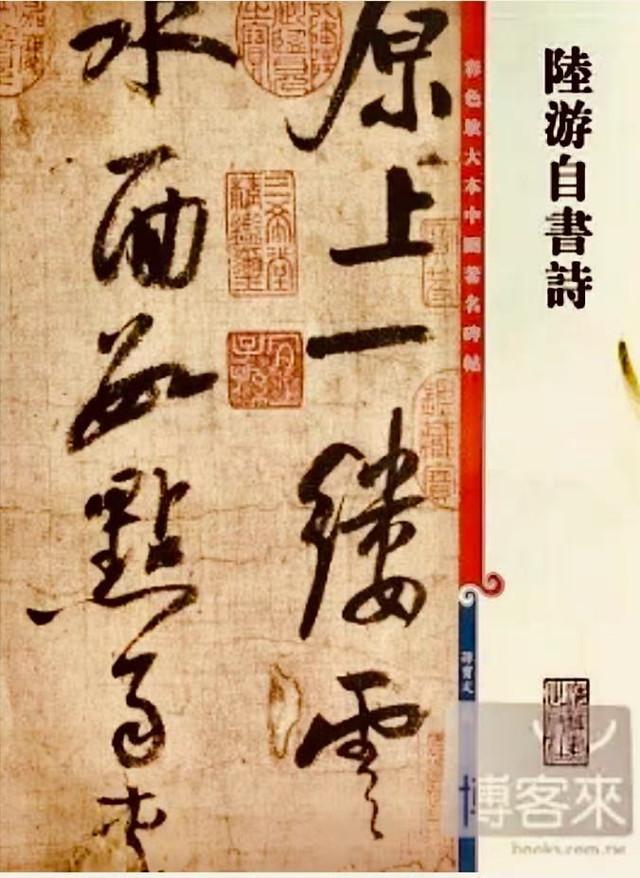 陸游自書詩
彩色放大本中國著名碑帖
孫寶文
原上一縷雲
水面數點雨夾
博客來
books.com.tw